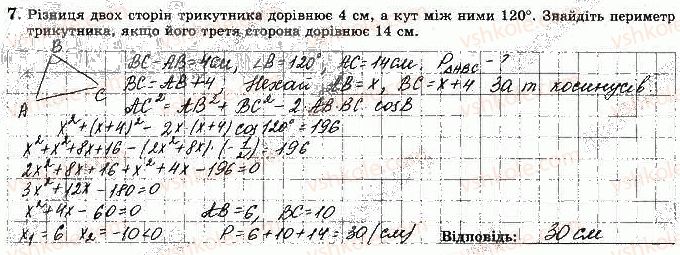 7. Різниця двох сторін трикутника дорівнює 4 см, а кут між ними 120°. Знайдіть периметр
трикутника, якщо його третя сторона дорівнює 14 см.
B
A
C
BC-AB=4см, ∠B=120°, AC=14см. P△ABC - ?
BC=AB+4, Нехай AB=x, BC=x+4 За т косинусів
AC²=AB²+BC²-2·AB·BC cosB
x²+(x+4)²-2x·(x+4)cos120°=196
x²+x²+8x+16-(2x²+8x)·(-1/2)=196
2x²+8x+16+x²+4x-196=0
3x²+12x-180=0
x²+4x-60=0 AB=6, BC=10
x₁=6 x₂=-10<0 P=6+10+14=30(см) Відповідь: 30 см